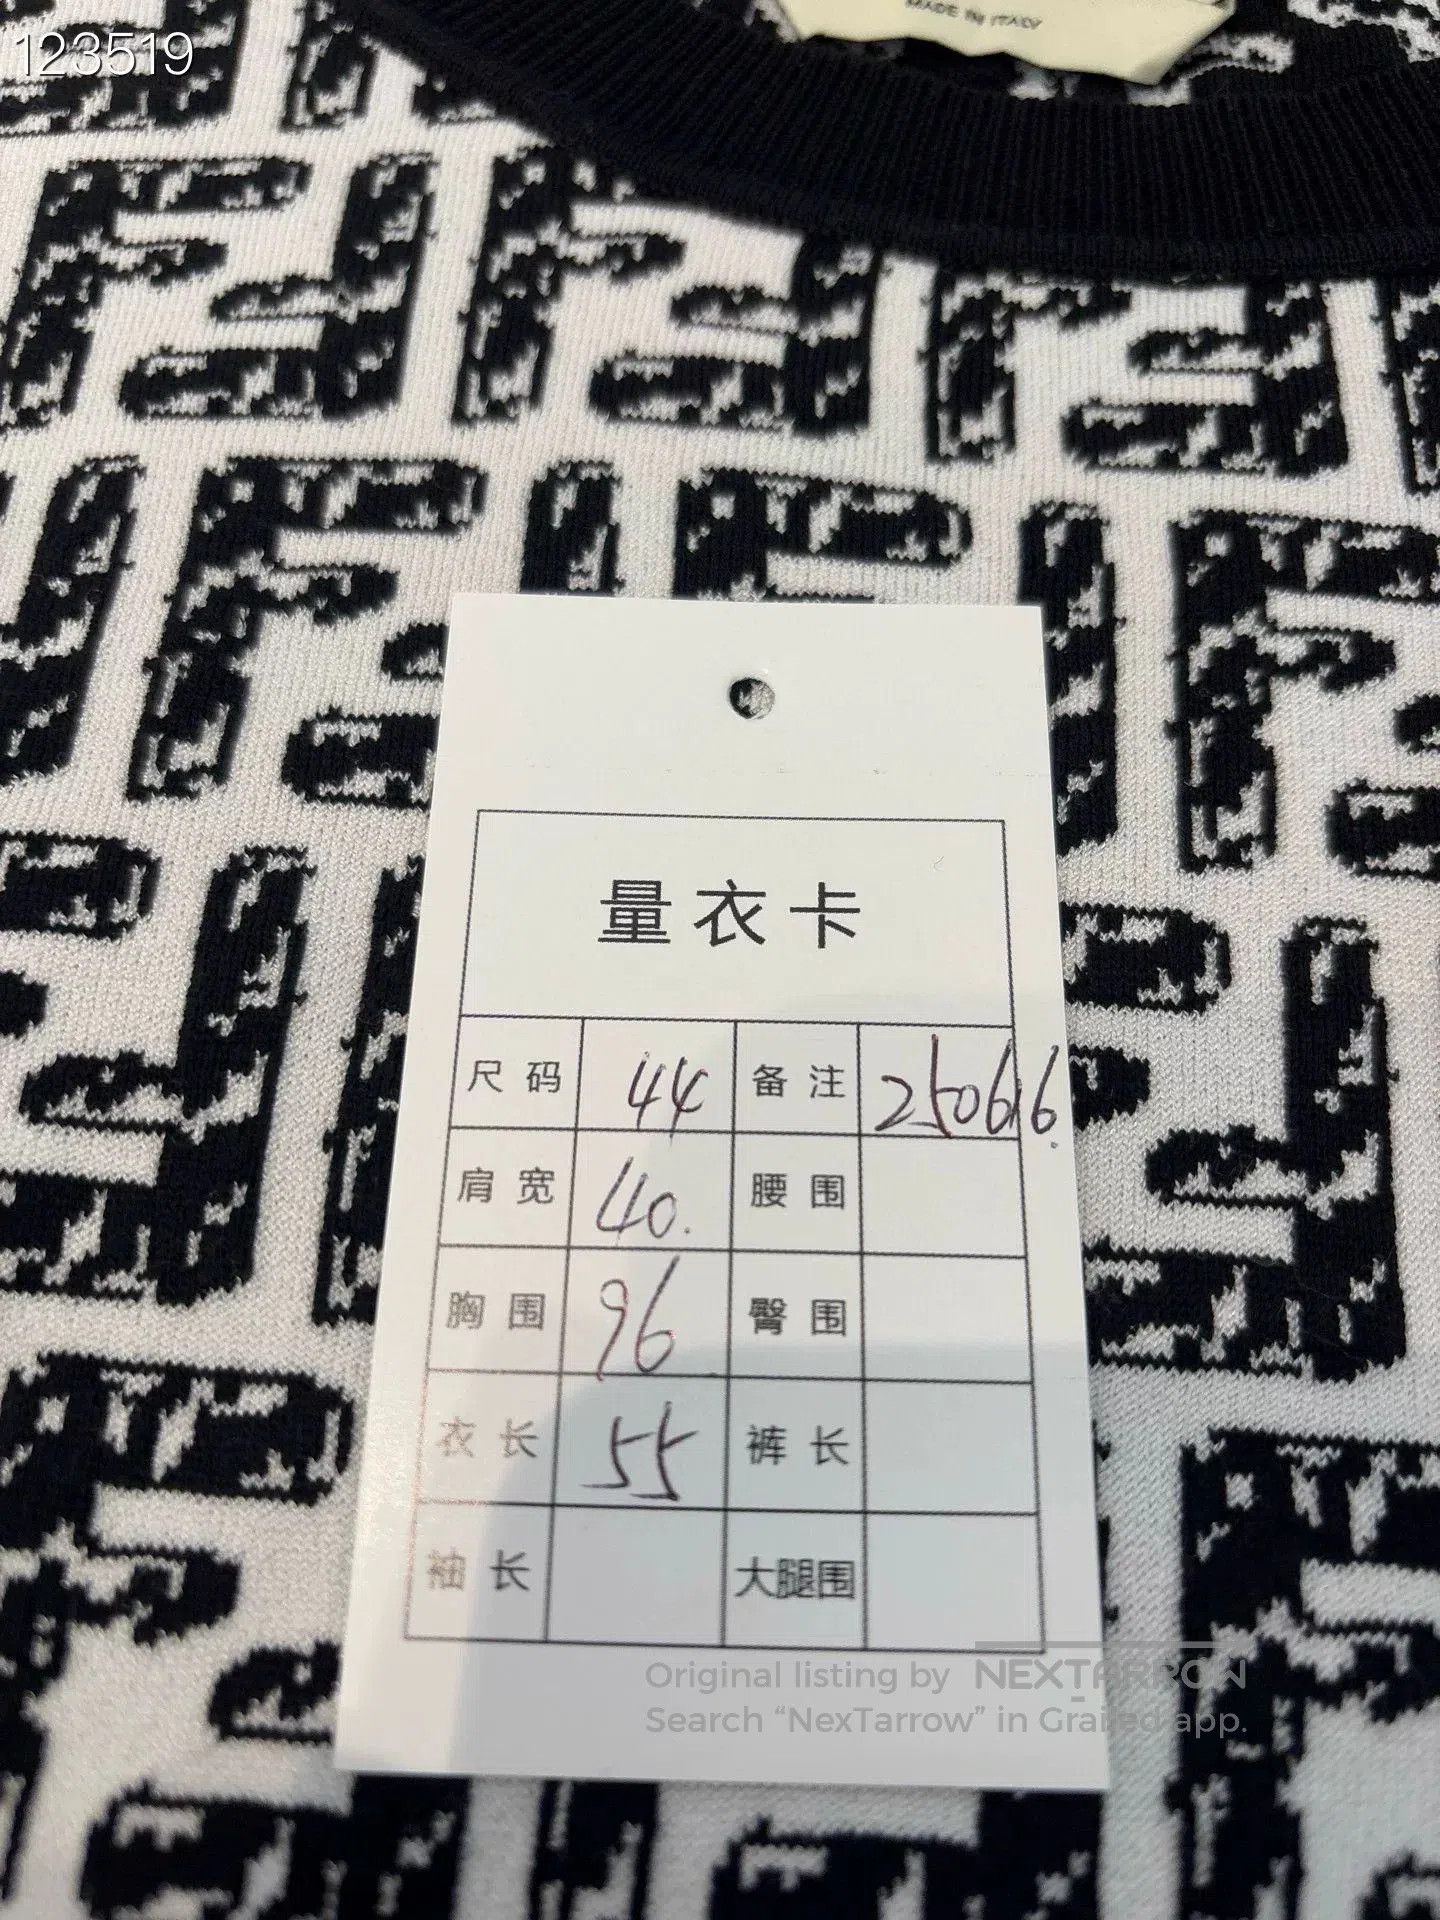 MADE IN ITALY
123519
量衣卡
尺码 44 备注 250616.
肩宽 40. 腰围
胸围 96 臀围
衣长 55 裤长
袖长 大腿围
Original listing by NEXTARROW
Search “NexTarrow” in Grailed app.